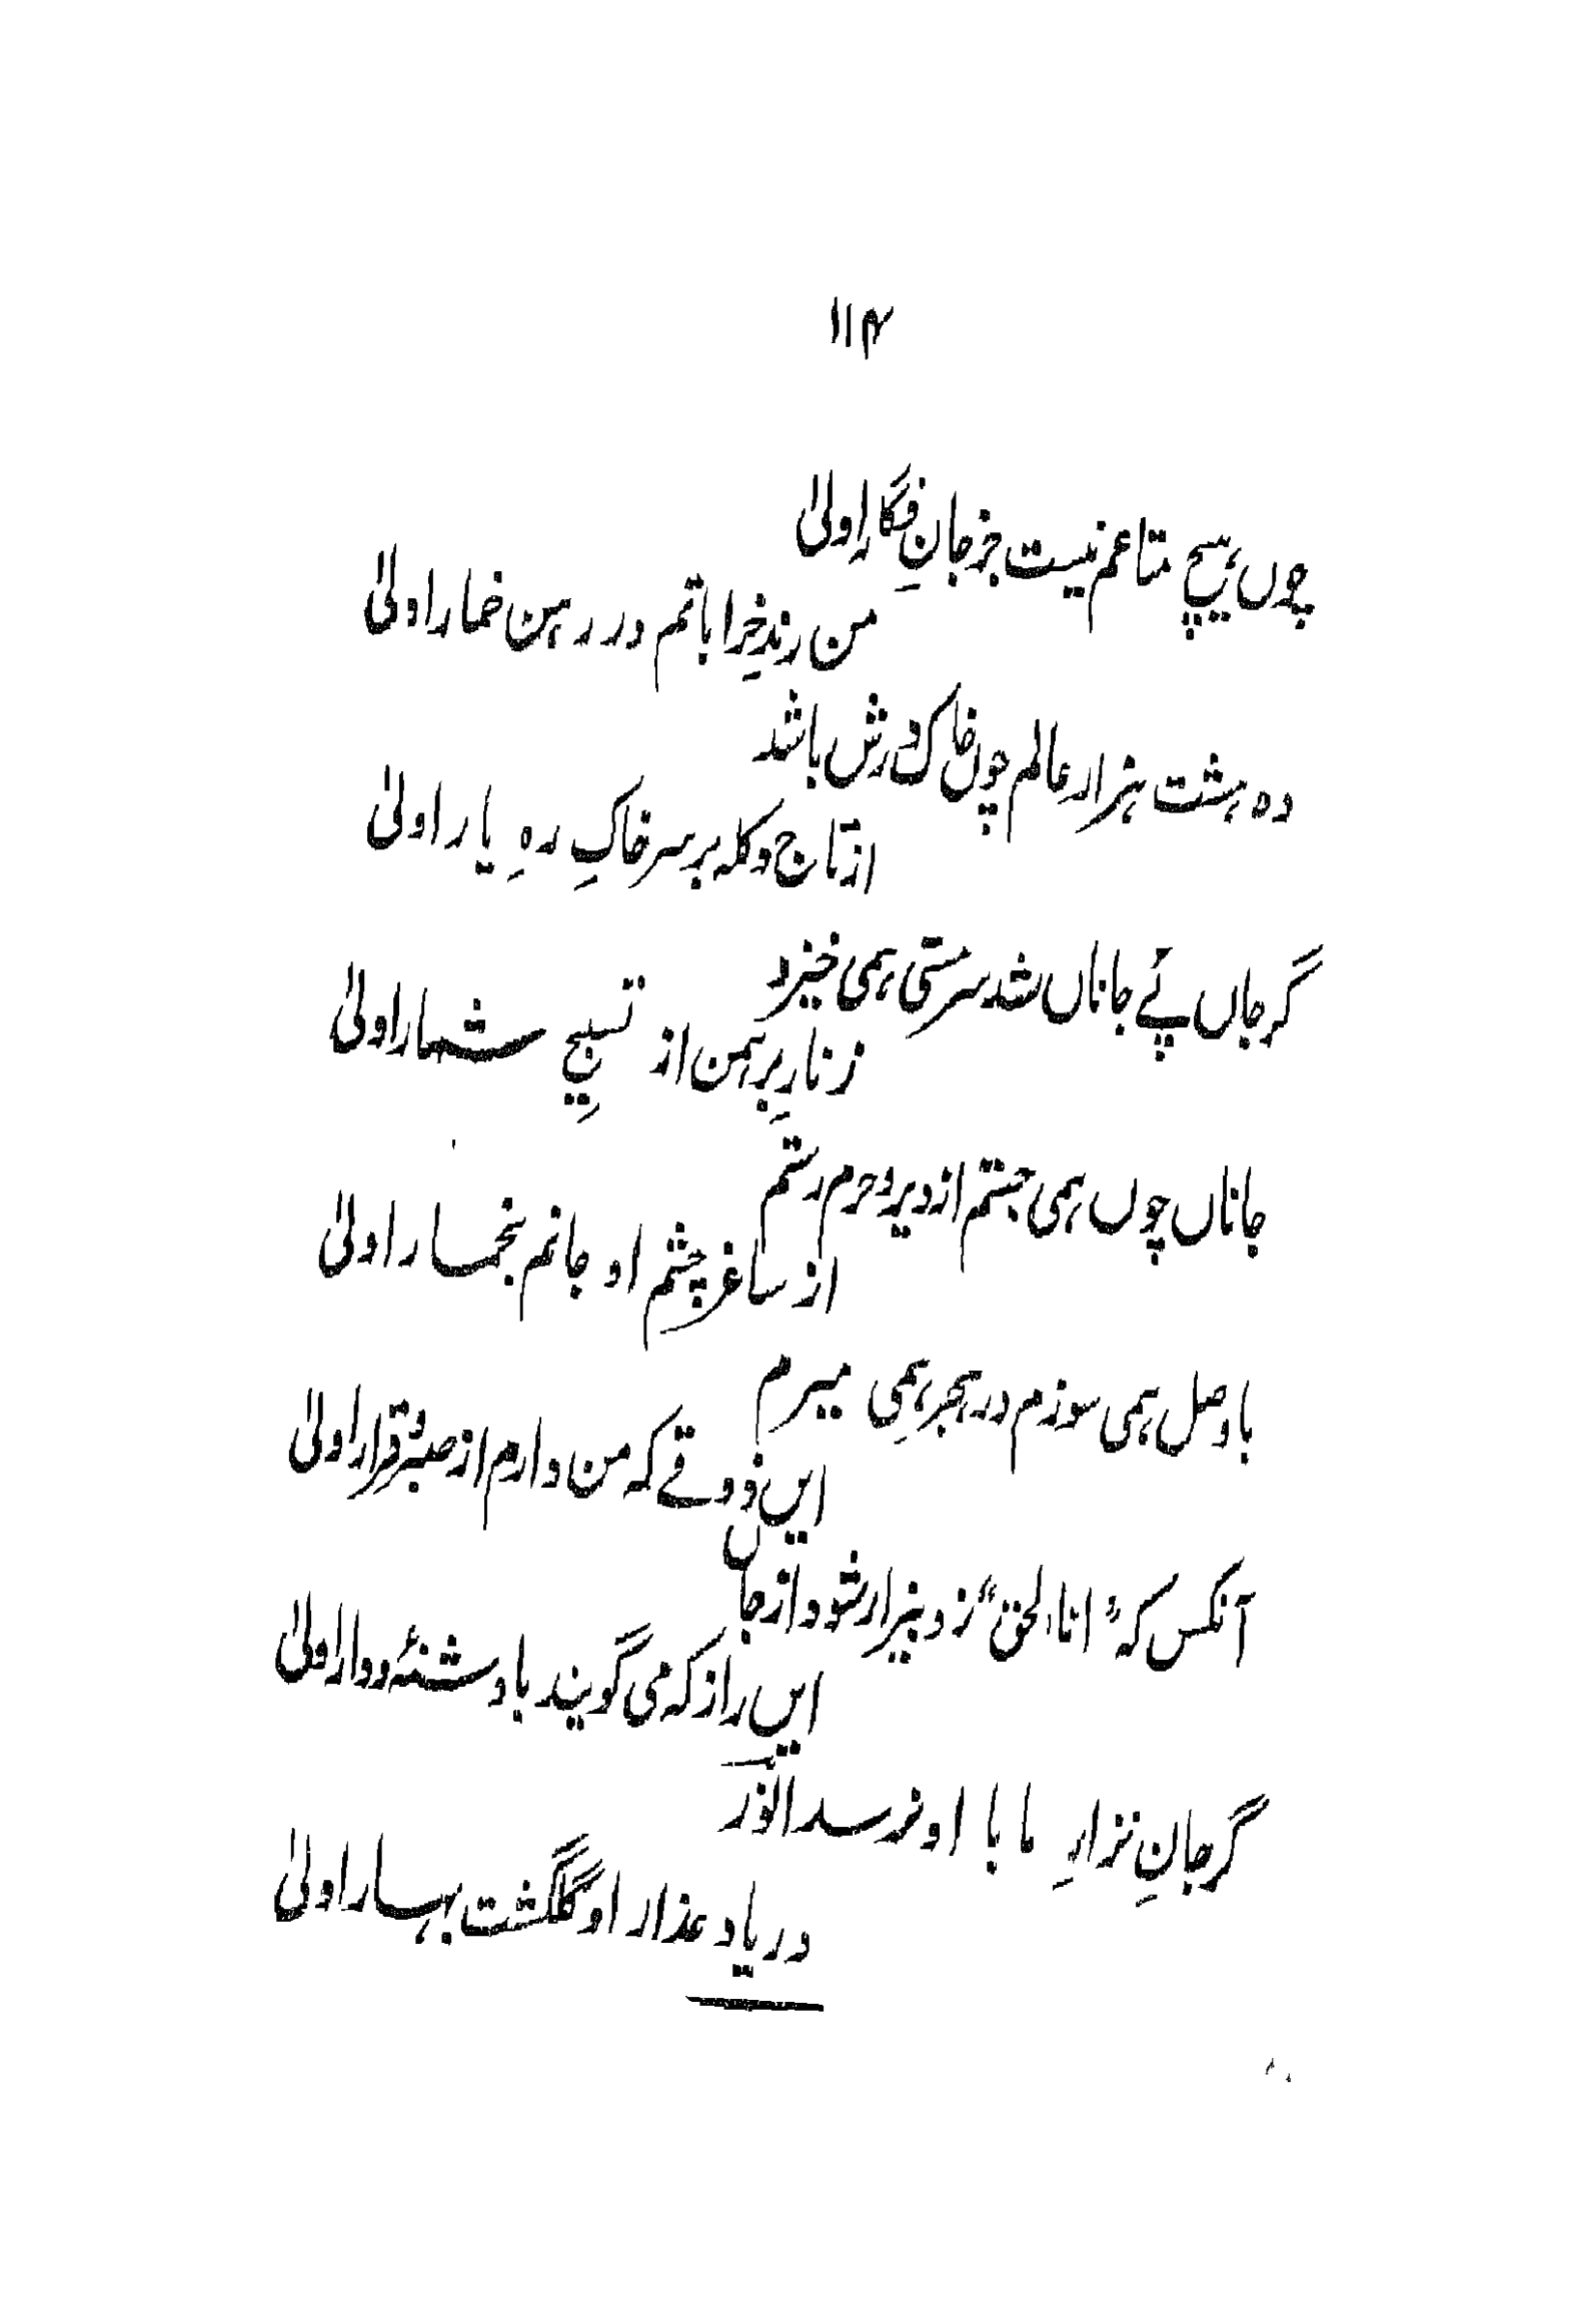 ۱۱۴
چوں ہیچ متاعم نیست جز جانِ فگار اولیٰ
من رندِ خراباتم در رہن خمار اولیٰ
دہ ہشت ہزار عالم چوں خاک درش باشد
از تاج و کلہ بر سر خاکِ رہِ یار اولیٰ
گر جاں پئے جاناں شد سرمستی ہمی خیزد
زنارِ برہمن از تسبیحِ شمار اولیٰ
جاناں چوں ہمی جستم از دیر و حرم رستم
از ساغر چشم او جانم بخمار اولیٰ
با وصل ہمی سوزم در ہجر ہمی میرم
ایں ذوقے کہ من دارم از صبر و قرار اولیٰ
آنکس کہ "انا الحق" زد بیزار شود از جاں
ایں راز کہ می گویند با دشنۂ و دار اولیٰ
گر جانِ نزارِ ما با او نرسد انورؔ
در یاد عذار او گلگشت بہار اولیٰ